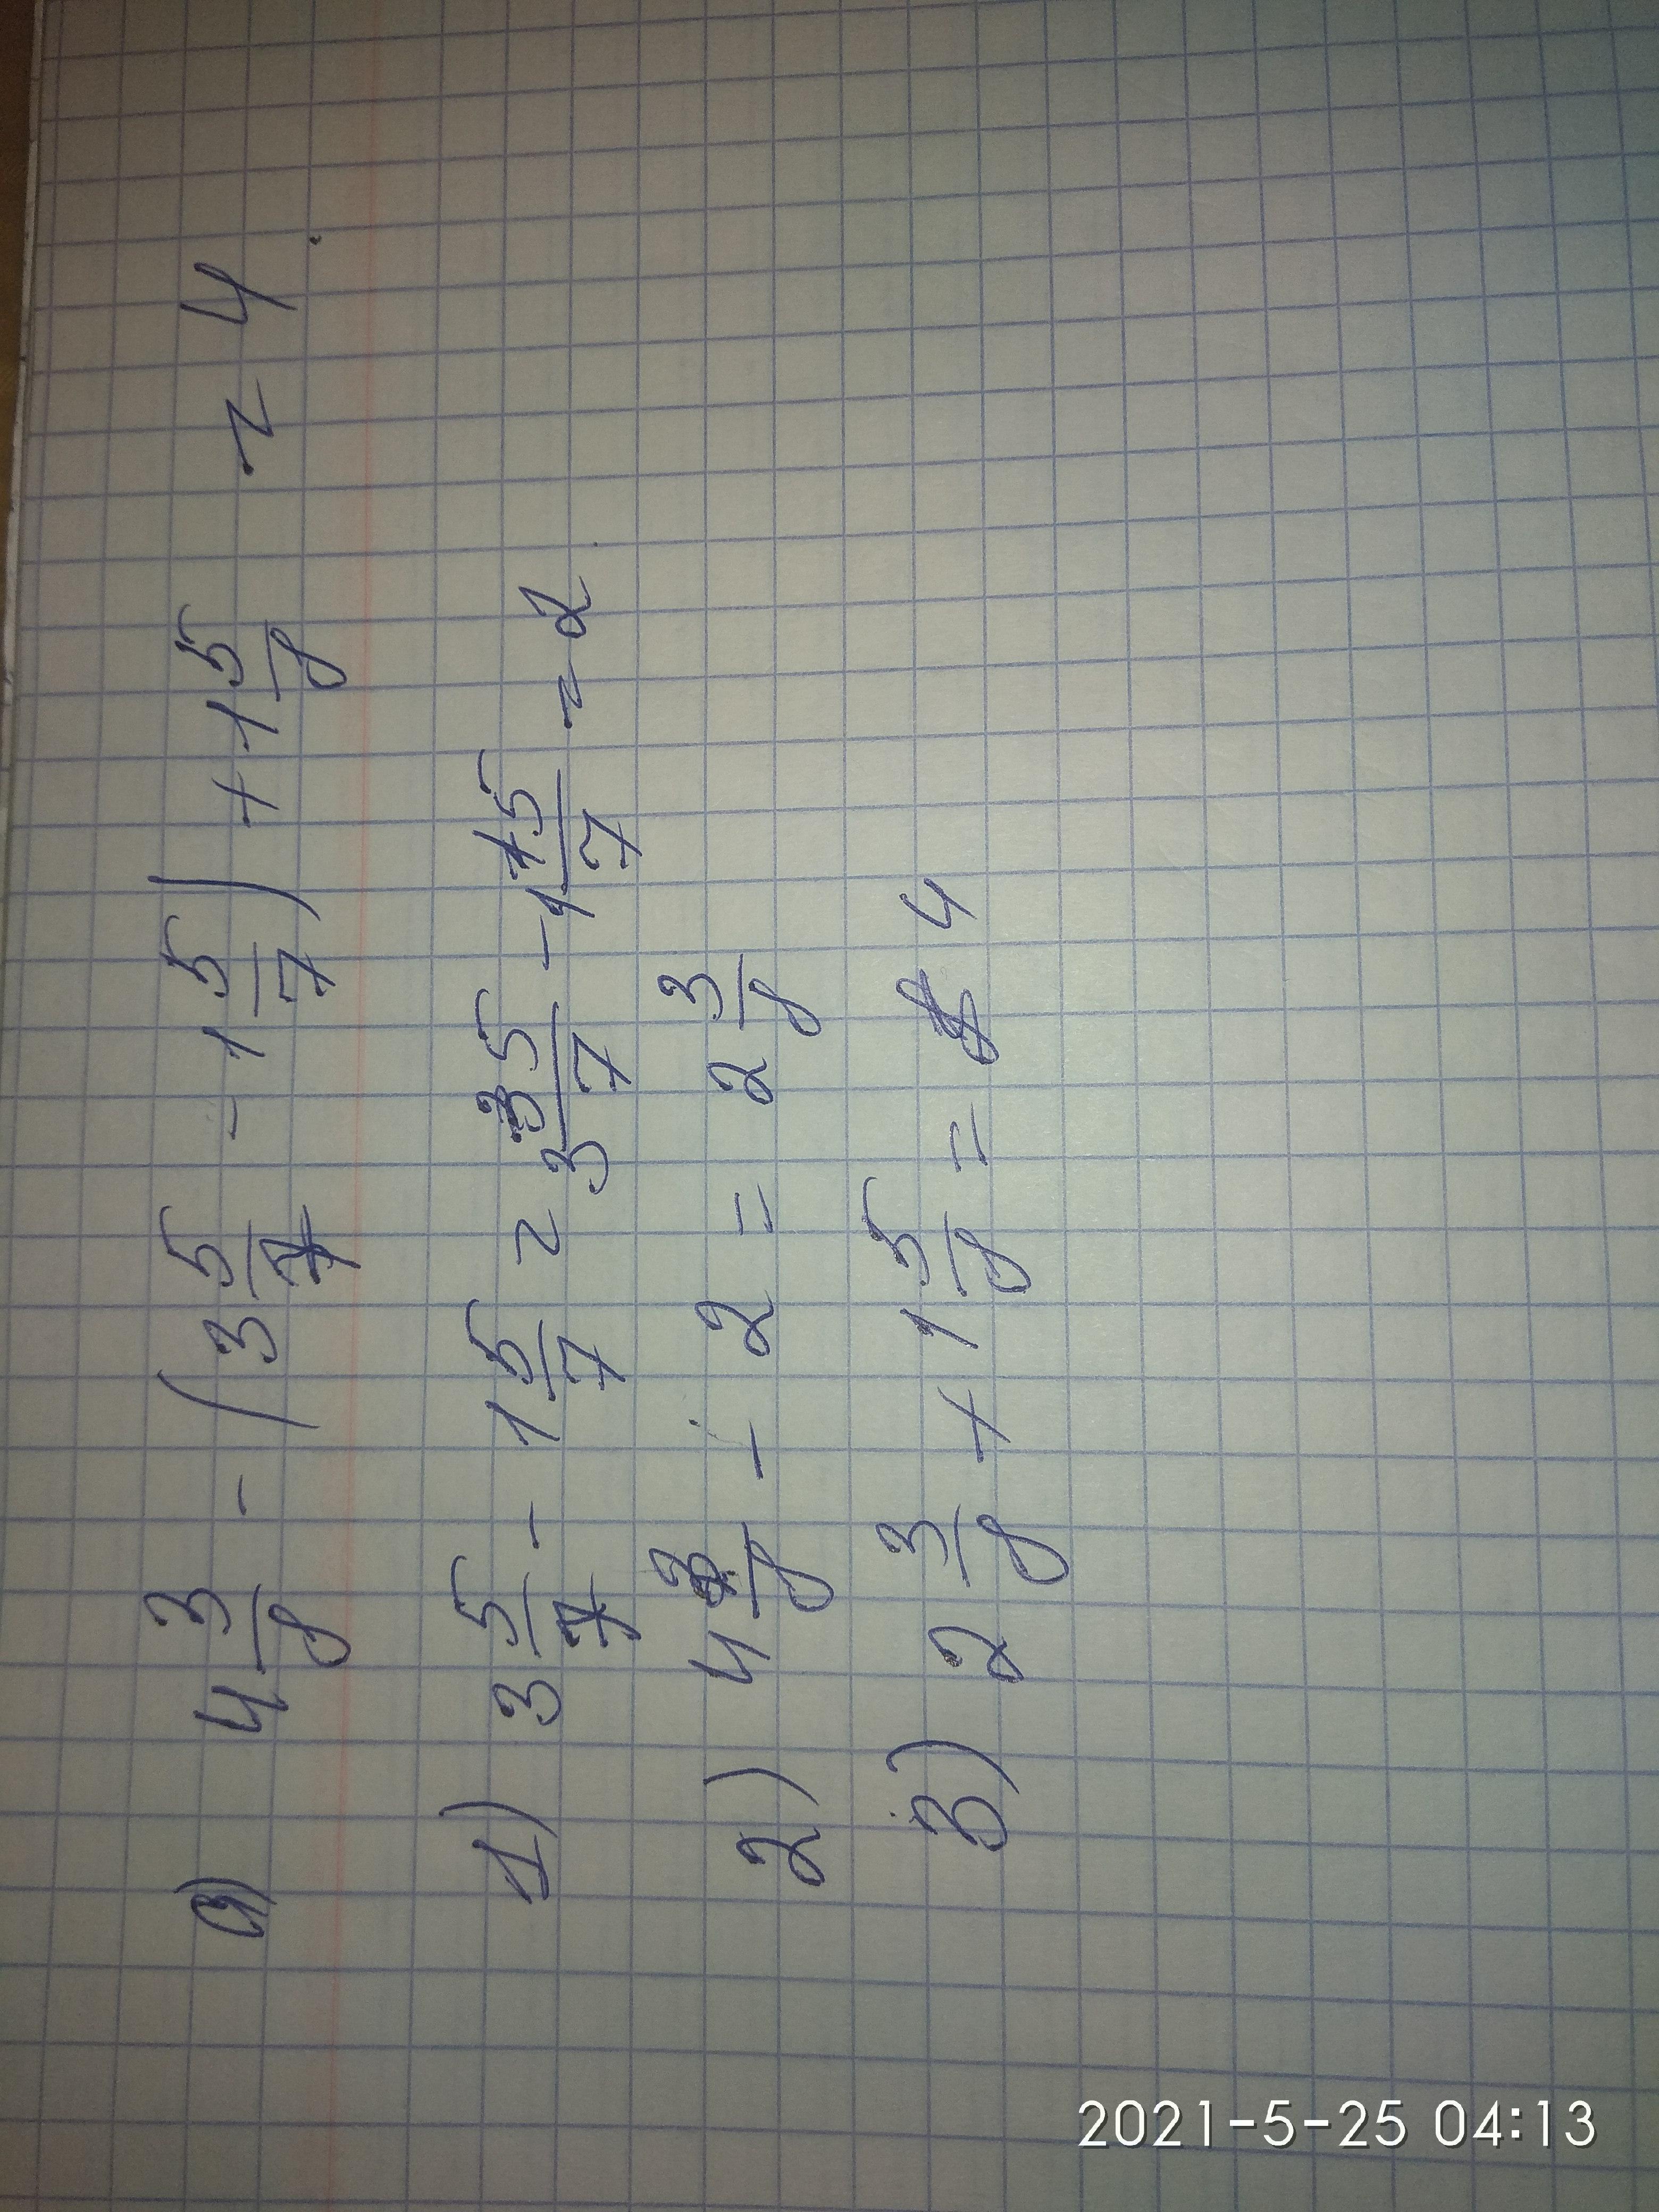 а) 4 3/8 - (3 5/7 - 1 5/7) + 1 5/8 = 4
1) 3 5/7 - 1 5/7 = 3 5/7 - 1 5/7 = 2
2) 4 3/8 - 2 = 2 3/8
3) 2 3/8 + 1 5/8 = 4
2021-5-25 04:13